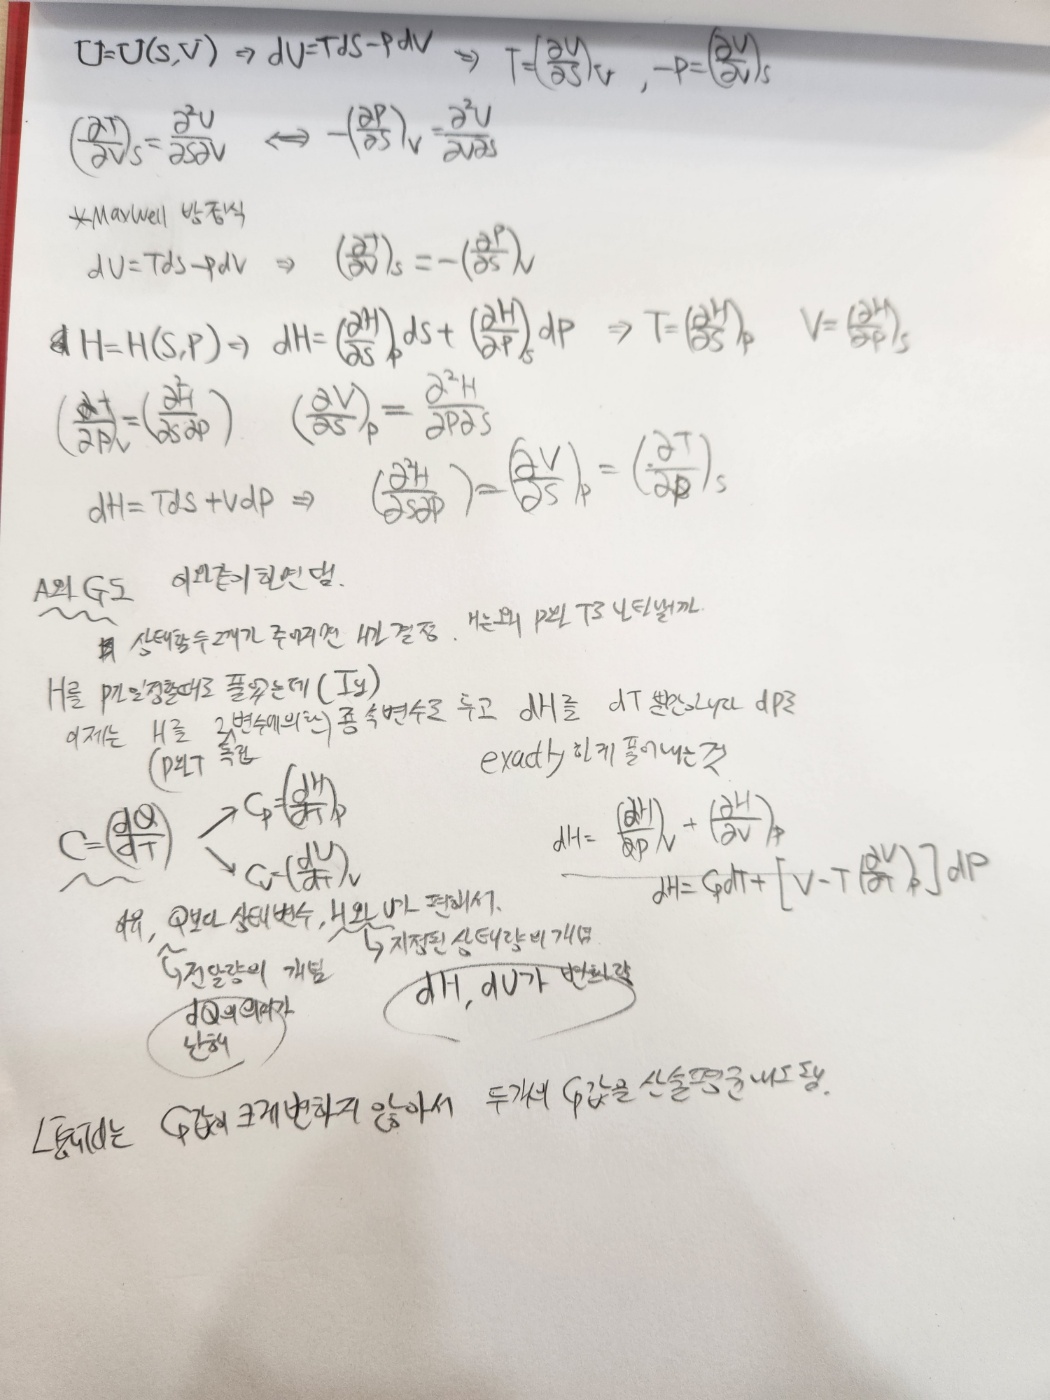 U=U(S,V) ⇒ dU=TdS-PdV ⇒ T=(∂U/∂S)V , -P=(∂U/∂V)S
(∂T/∂V)S=∂²U/∂S∂V ⇔ -(∂P/∂S)V=∂²U/∂V∂S
*Maxwell 방정식
dU=TdS-PdV ⇒ (∂T/∂V)S=-(∂P/∂S)V
H=H(S,P)⇒ dH=(∂H/∂S)P dS+(∂H/∂P)S dP ⇒ T=(∂H/∂S)P V=(∂H/∂P)S
(∂T/∂P)V=(∂²H/∂S∂P) (∂V/∂S)P=∂²H/∂P∂S
dH=TdS+VdP ⇒ (∂²H/∂S∂P)=(∂V/∂S)P=(∂T/∂P)S
A와 G도 이와같이 하면 됨.
상태함수 2개가 주어지면 H가 결정.
H를 P가 일정할때로 풀었는데
이제는 H를 2변수에의한 종속변수로 두고 dH를 dT 뿐만아니라 dP로
(P와T exactly 하게 풀어내는것
C=(dQ/dT) → Cp=(dH/dT)P
↘ Cv=(dU/dT)V
dH= (∂H/∂P)V+(∂H/∂V)P
dH=CpdT+[V-T(∂V/∂T)P]dP
이유, Q보다 상태변수, H와 U가 편해서.
↳전달량의 개념
↳지정된 상태량의 개념
dQ의 의미가
난해
dH, dU가 변화량
Cp값이 크게 변하지 않아서 두개의 Cp값을 산술평균 내도 됨.